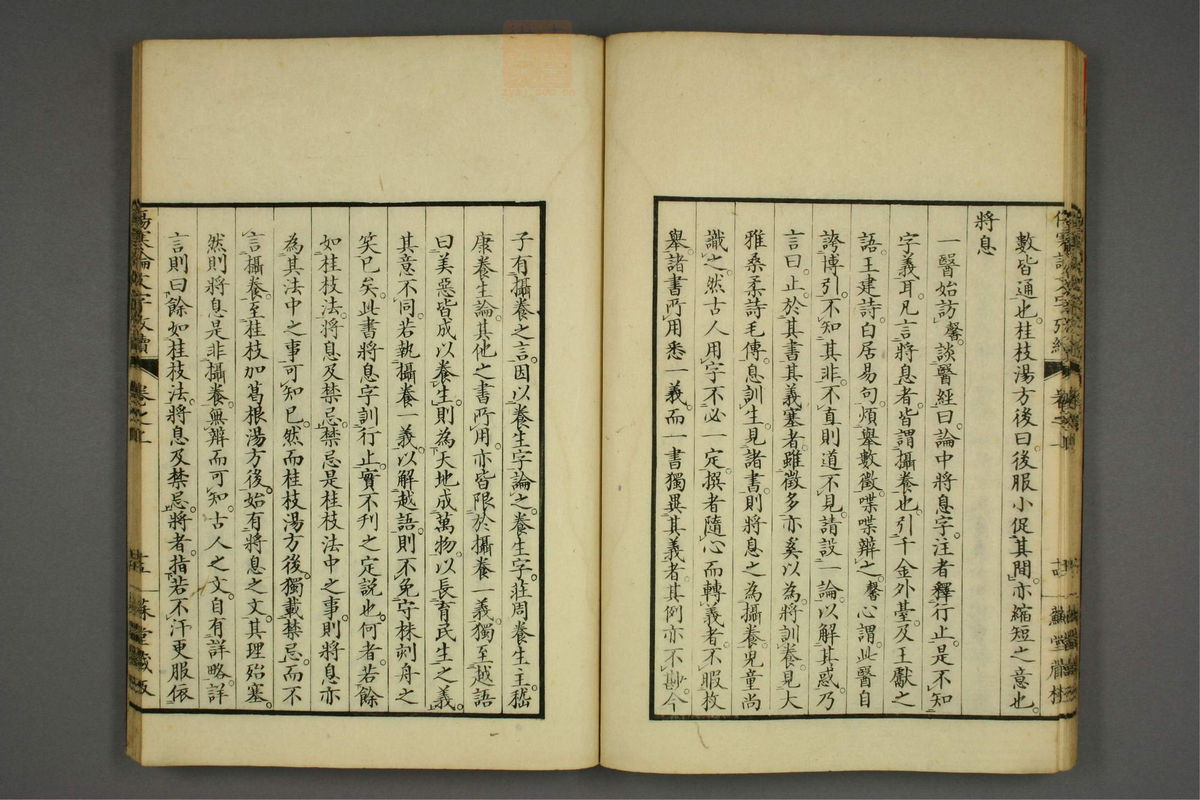 數皆通也。桂枝湯方後曰。後服小促其間。亦縮短之意也。
將息
一醫始訪馨。談醫經曰。論中將息字。注者釋行止。是不知
字義耳。凡言將息者。皆謂攝養也。引千金外臺。及王獻之
語。王建詩。白居易句。煩舉數徵。喋喋辨之。馨心謂。此醫自
誇博引。不知其非。不直則道不見。請設一論。以解其惑。乃
言曰。止於其書其義塞者。雖徵多亦奚以為。將訓養。見大
雅桑柔詩毛傳。息訓生。見諸書。則將息之為攝養。兒童尚
識之。然古人用字不必一定。撰者隨心而轉義者。不暇枚
舉。諸書所用悉一義。而一書獨異其義者。其例亦不尠。今
子有攝養之言。因以養生字論之。養生字。莊周養生主。嵇
康養生論。其他之書所用。亦皆限於攝養一義。獨至越語
曰美惡皆成以養生。則為天地成萬物。以長育民生之義。
其意不同。若執攝養一義。以解越語。則不免守株刻舟之
笑已矣。此書將息字訓行止。實不刊之定說也。何者。若餘
如桂枝法。將息及禁忌。禁忌是桂枝法中之事。則將息亦
為其法中之事可知已。然而桂枝湯方後。獨載禁忌。而不
言攝養。至桂枝加葛根湯方後。始有將息之文。其理殆塞。
然則將息是非攝養。無辨而可知。古人之文。自有詳略。詳
言則曰。餘如桂枝法。將息及禁忌。將者。指若不汗更服依
傷寒論文字攷續 卷之上 一蘇堂藏版